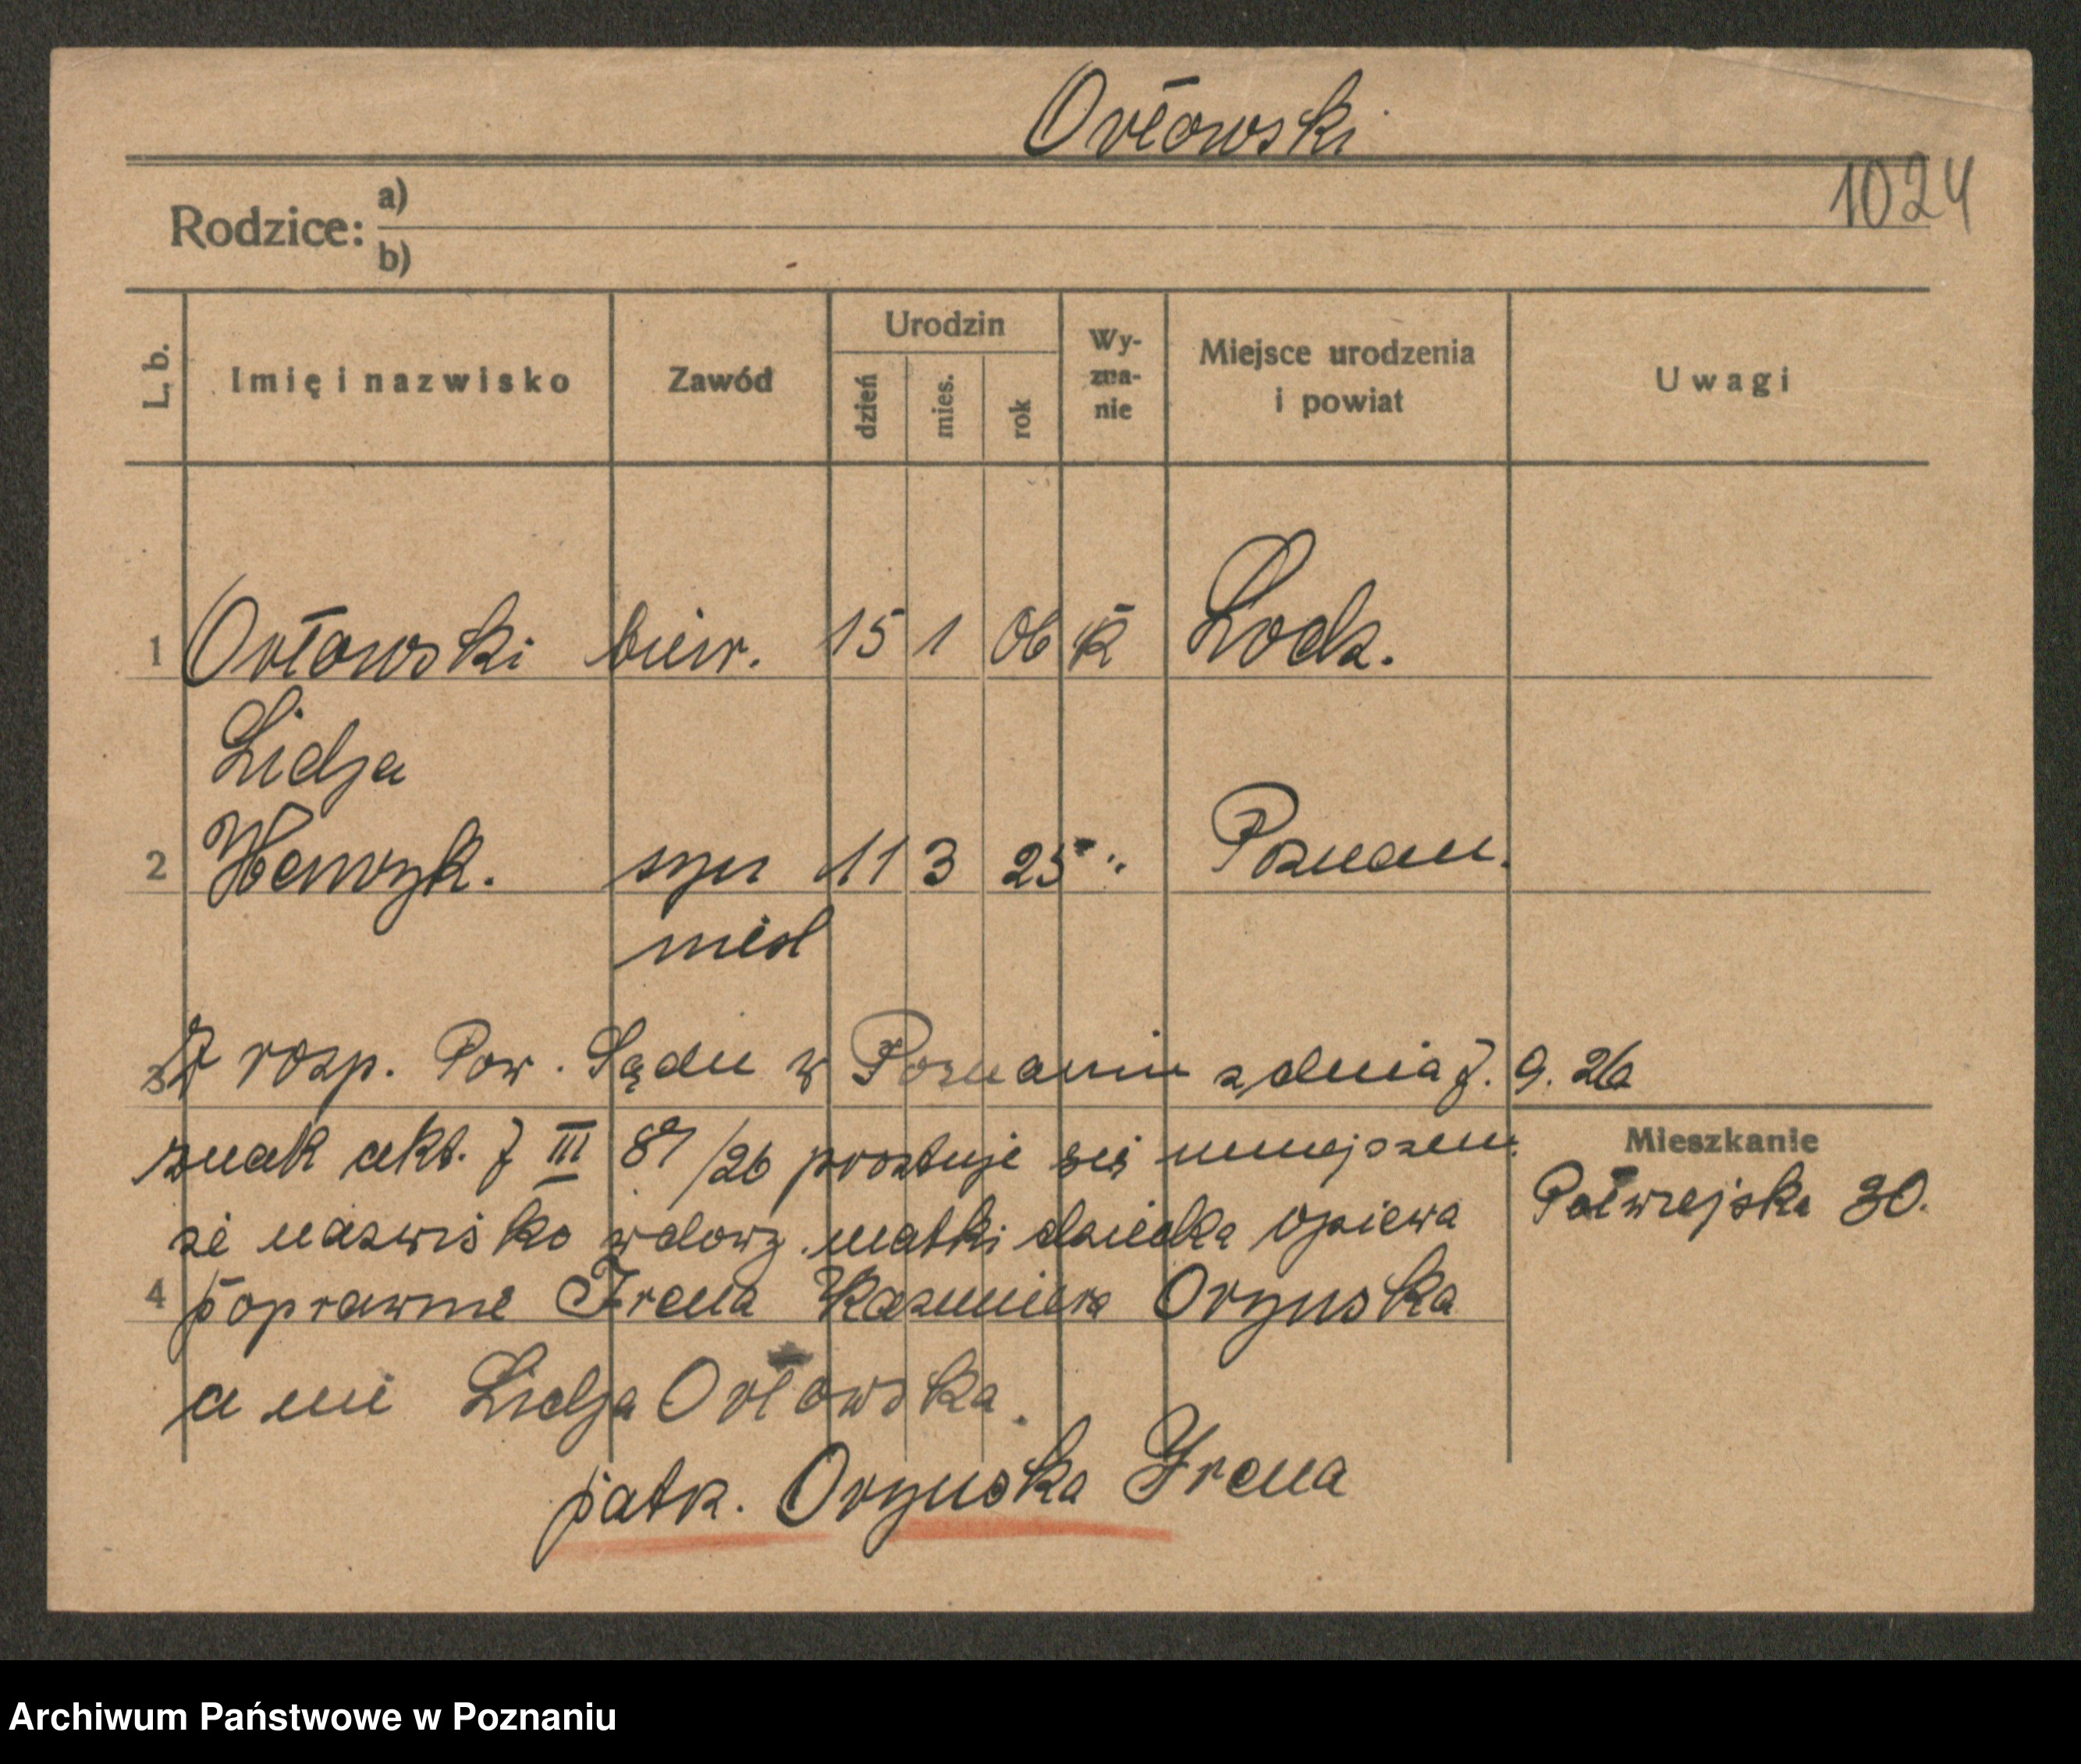 Orłowski
1024
Rodzice: a)
b)
L. b. Imię i nazwisko Zawód Urodzin dzień mies. rok Wy-zna-nie Miejsce urodzenia i powiat Uwagi
1 Orłowski biur. 15 1 06 k Łodz.
Lidja
2 Henryk. syn 11 3 25 " Poznan.
niesl
3 rozp. Pow. Sądu w Poznaniu z dnia 7. 9. 26
znak akt. J III 87/26 prostuje się niniejszem
Mieszkanie
że nazwisko wdowy matki dziecka opiewa
Połwiejska 30.
4 poprawnie Irena Kazimiera Orynska
a nie Lidja Orłowska.
patrz. Orynska Irena
Archiwum Państwowe w Poznaniu